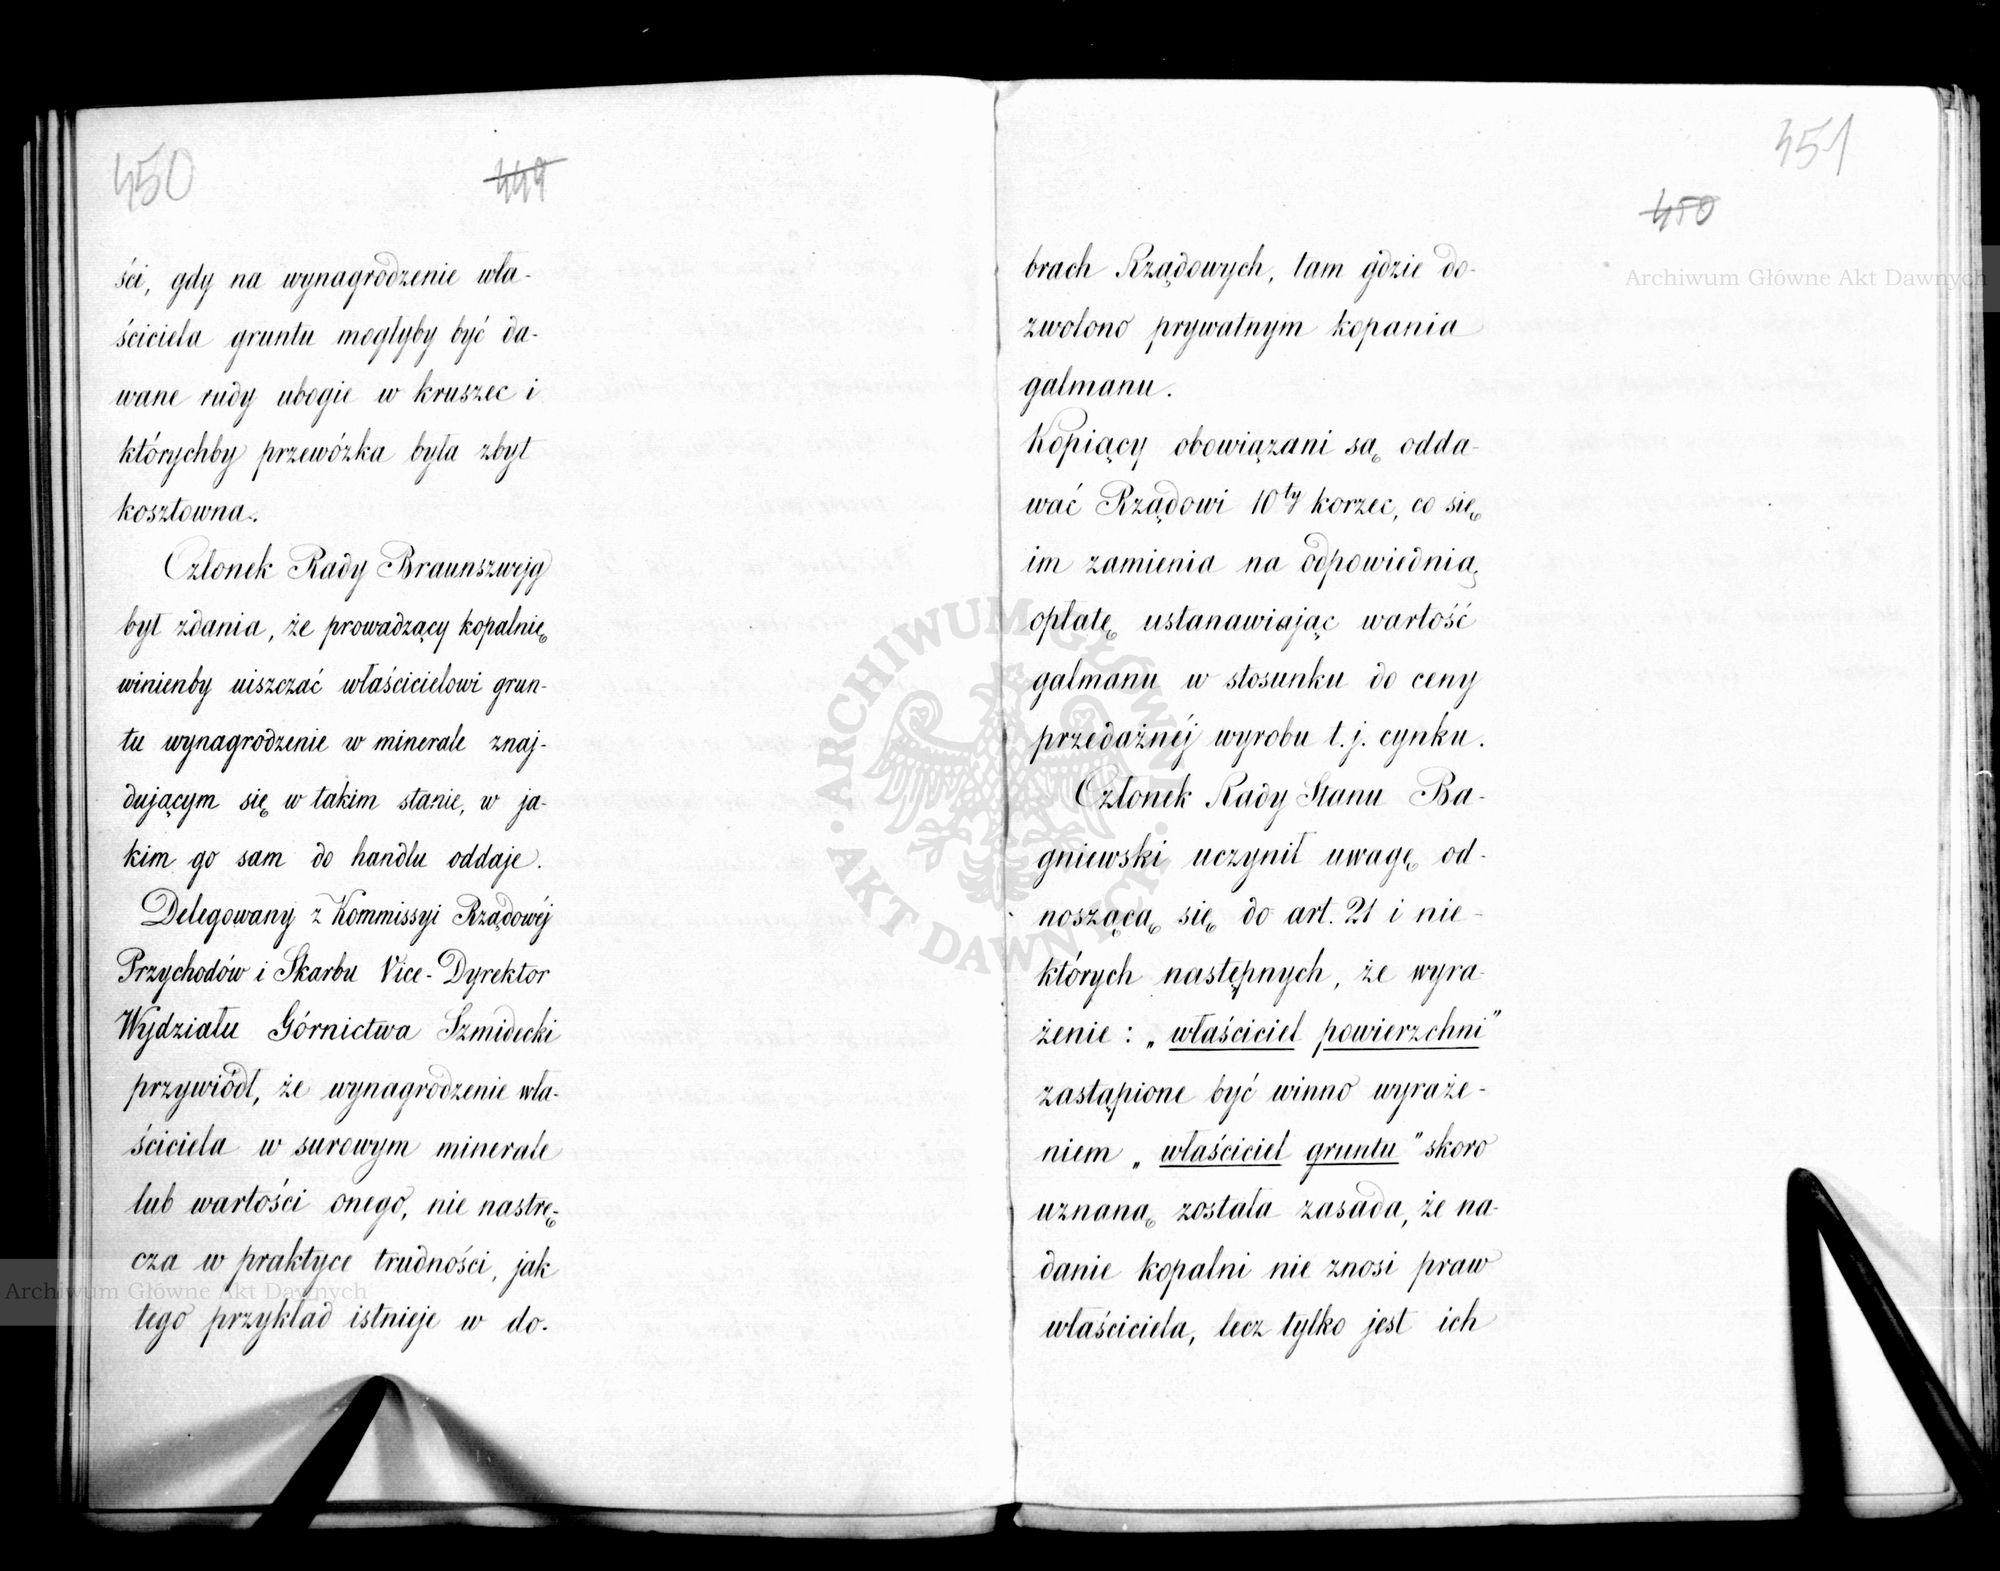 450
449
ści, gdy na wynagrodzenie wła-
ściciela gruntu mogłyby być da-
wane rudy ubogie w kruszec i
którychby przewózka była zbyt
kosztowna.
Członek Rady Braunszwejg
był zdania, że prowadzący kopalnię
winienby uiszczać właścicielowi grun-
tu wynagrodzenie w minerale znaj-
dującym się w takim stanie, w ja-
kim go sam do handlu oddaje.
Delegowany z Kommissyi Rządowéj
Przychodów i Skarbu Vice-Dyrektor
Wydziału Górnictwa Szmidecki
przywiódł, że wynagrodzenie wła-
ściciela w surowym minerale
lub wartości onego, nie nastrę-
cza w praktyce trudności, jak
tego przykład istnieje w do-
451
450
brach Rządowych, tam gdzie do-
zwolono prywatnym kopania
galmanu.
Kopiący obowiązani są odda-
wać Rządowi 10ty korzec, co się
im zamienia na odpowiednią
opłatę ustanawiając wartość
galmanu w stosunku do ceny
przedażnéj wyrobu t.j. cynku.
Członek Rady Stanu Ba-
gniewski uczynił uwagę od-
noszącą się do art. 21 i nie-
których następnych, że wyra-
żenie: „właściciel powierzchni"
zastąpione być winno wyraże-
niem „właściciel gruntu" skoro
uznaną została zasada, że na-
danie kopalni nie znosi praw
właściciela, lecz tylko jest ich
Archiwum Główne Akt Dawnych
Archiwum Główne Akt Dawnych
ARCHIWUM GŁÓWNE AKT DAWNYCH